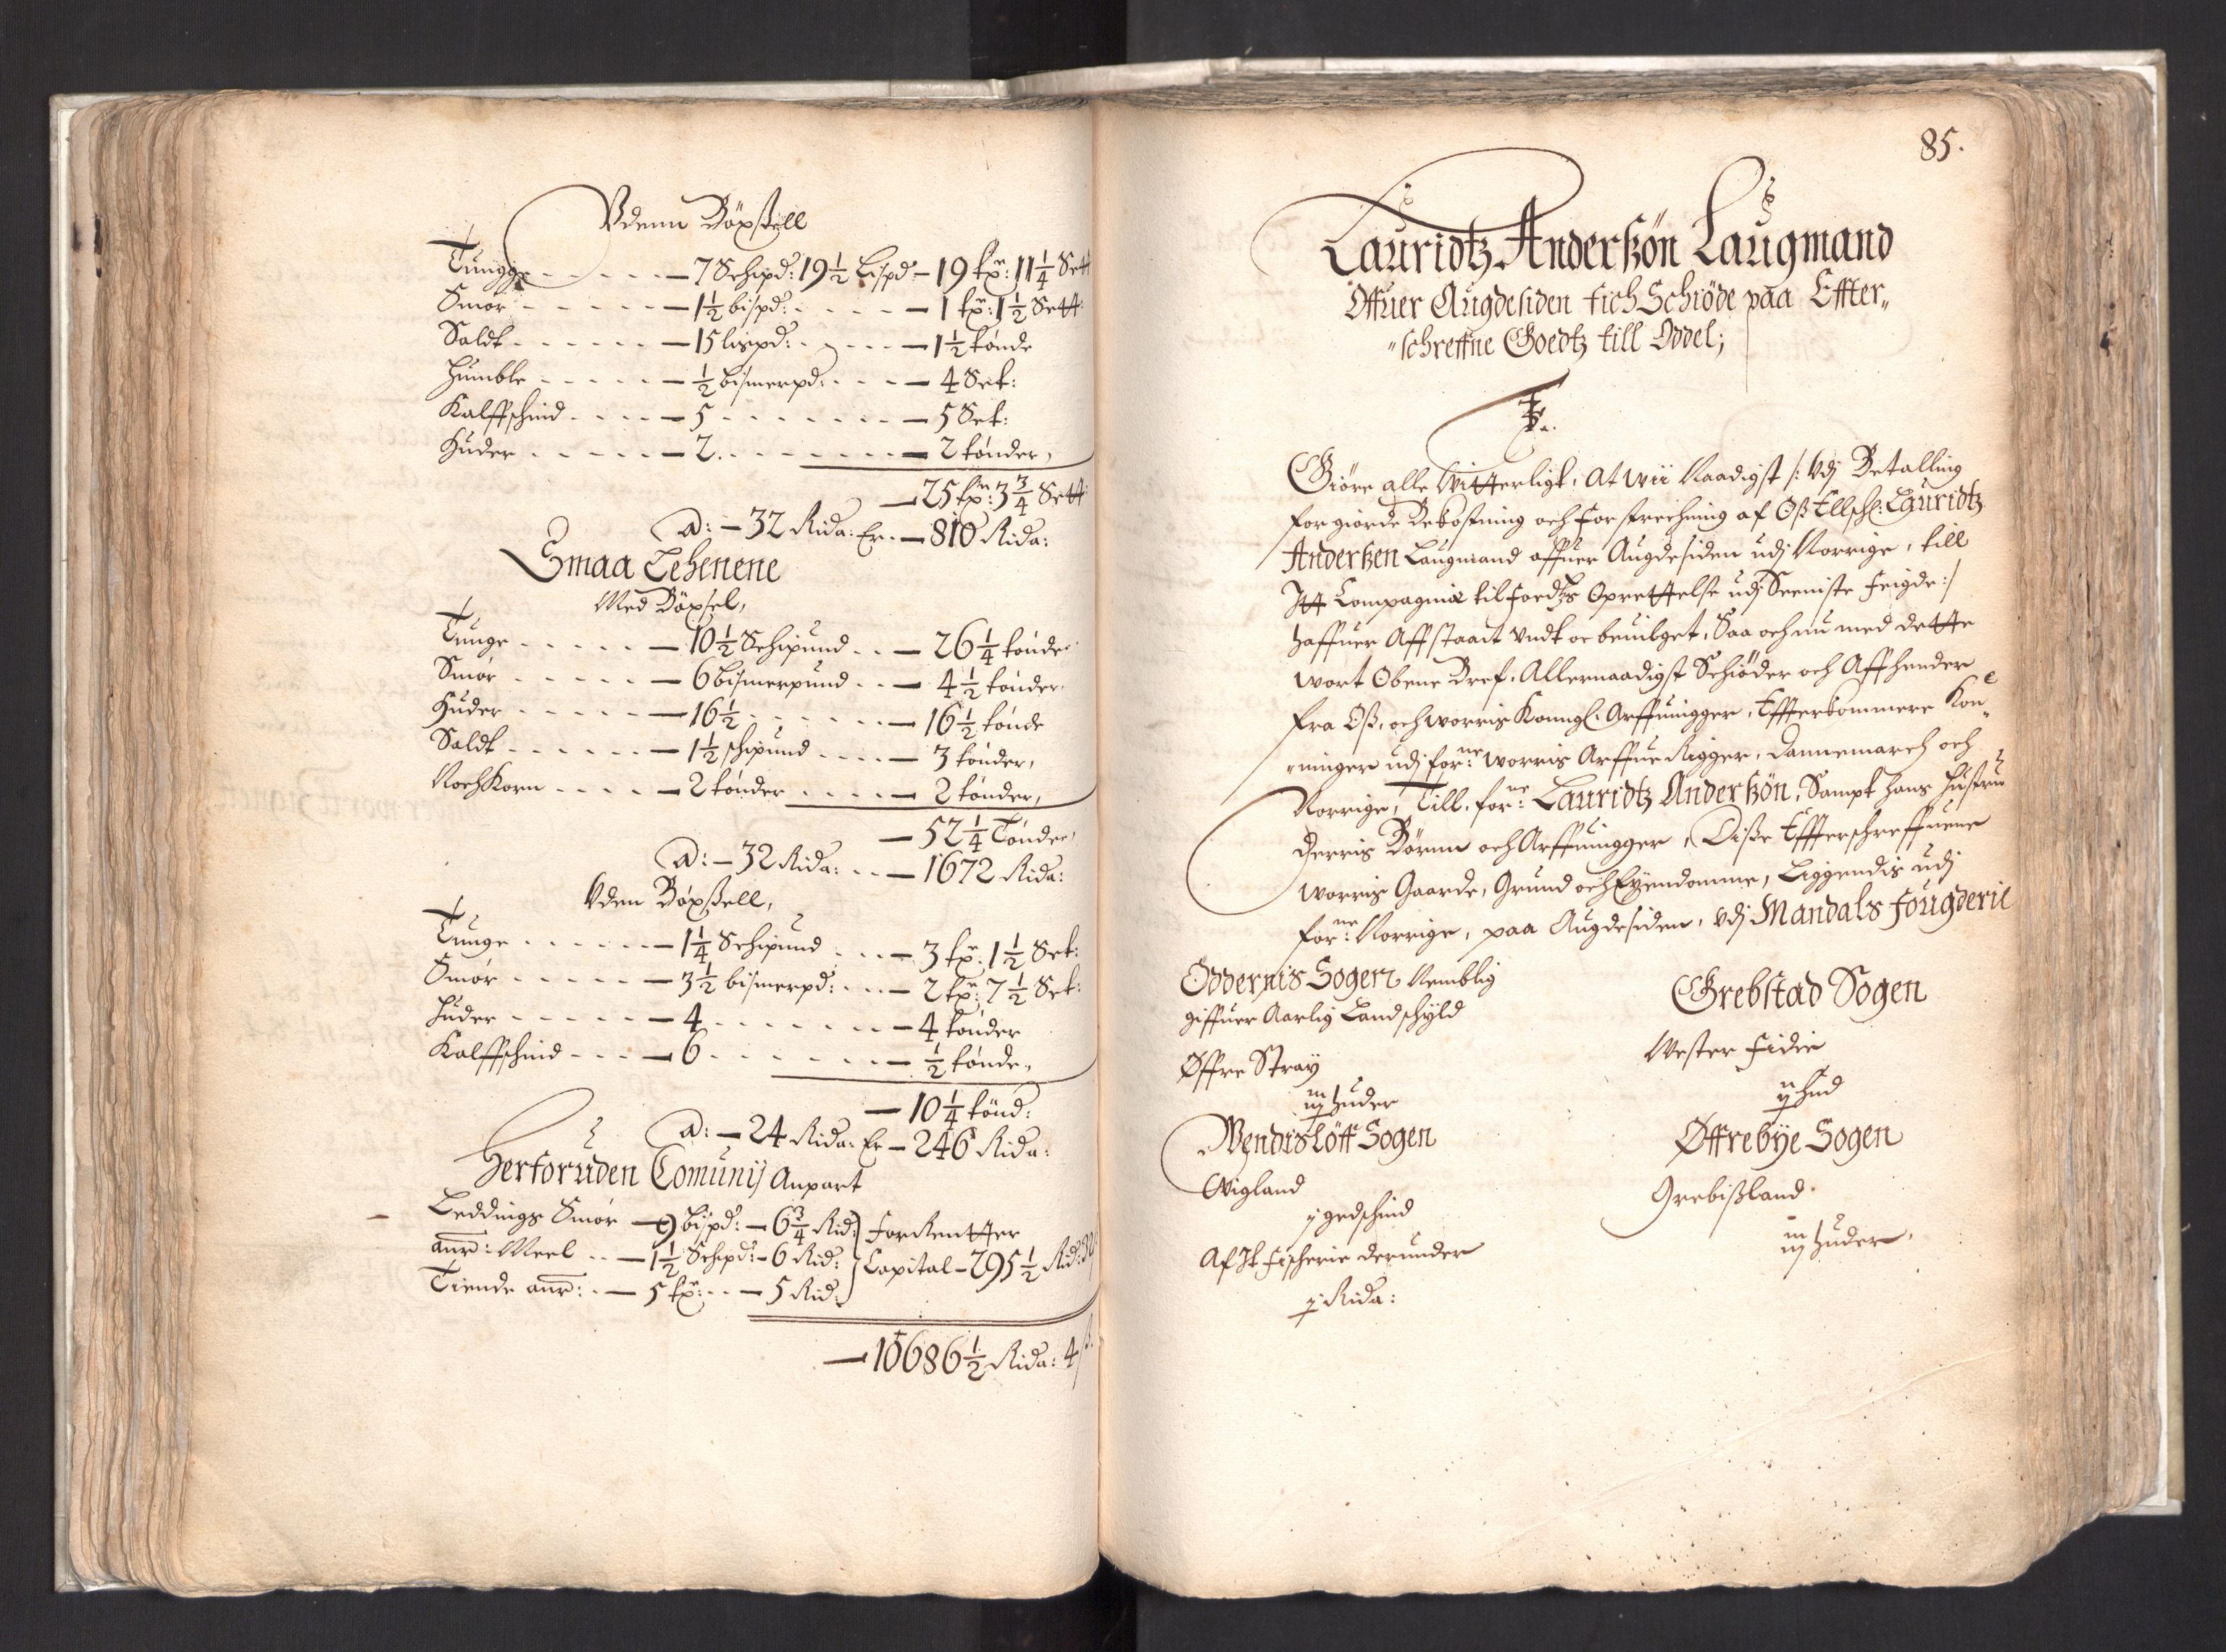 Vdenn Böxßell
Tungge - - - - - 7 Schipd: 19 1/2 Lispd - 19 tr: 11 1/4 Sett
Smör - - - - - 1 1/2 bispd: - - - - 1 tr: 1 1/2 Sett
Saldt - - - - - 15 lispd: - - - - 1 1/2 tönde
Humble - - - - - 1/2 bismerpd: - - - 4 Set:
Kalffschind - - - - 5 - - - - - - - 5 Set:
Huder - - - - - 2. - - - - - - - 2 tönder,
25 tr: 3 3/4 Sett
a: - 32 Rida: Er. - 810 Rida:
Smaa Lehenene
Med Böxsel,
Tunge - - - - - 10 1/2 Schipund - - 26 1/4 tönder
Smör - - - - - 6 Bismerpund - - 4 1/2 tönder
Huder - - - - - 16 1/2 - - - - - - 16 1/2 tönde
Saldt - - - - - 1 1/2 schipund - - - - 3 tönder,
Noch Korn - - - - 2 tönder - - - - 2 tönder,
52 1/4 Tönder,
a: - 32 Rida: - - 1672 Rida:
Vden Böxßell,
Tunge - - - - - 1 1/4 Schipund - - - 3 tr: 1 1/2 Set:
Smör - - - - - 3 1/2 bismerpd: - - - 2 tr: 7 1/2 Set:
Huder - - - - - 4 - - - - - - - 4 tönder
Kalffschind - - - 6 - - - - - - - 1/2 tönde,
10 1/4 tönd:
a: - 24 Rida: Er - 246 Rida:
Herforuden Comunij Anpart
Leddings Smör - 9 bispd: - 6 3/4 Rid: } for Rentter
annd: Meel - - 1 1/2 Schipd: - 6 Rid: } Capital - 295 1/2 Rid:
Tiende annd: - 5 tr: - - 5 Rid:
10686 1/2 Rida: 4 ß.
85.
Lauridtz Anderßön Laugmand
Offuer Augdesiden fich Schiöde paa Effter„
„schreffne Goedtz till Oddel;
F 3.
Giöre alle Witterligt, At wii Naadigst /: Vdj Betalling
for giorde Bekostning och forstrechning af Oß Ellschl: Lauridtz
Anderßen Laugmand offuer Augdesiden udj Norrige, till
Itt Compagniæ til foedtzs Oprettelse udj Seeniste feigde :/
haffuer Affstaait Undt oc beuilget, Saa och nu med dette
wort Obene Bref, Allernaadigst Schiöder och Affhender
fra Oß, och worris Konngl: Arffuingger, Effterkommere Kon„
„ninger udj forne: worris Arffue Rigger, Dannemarch och
Norrige, Till, forne: Lauridtz Anderßön, Sampt hans Hustru
Derris Börnn och Arffuingger, Diße Effterschreffuene
worris Gaarde, Grund och Eyendomme, Liggendis udj
forne: Norrige, paa Augdesiden, Vdj Mandals fougderie
Oddernis Sogen Nemblig
giffuer Aarlig Landschyld
Øffre Straÿ
iij Huder
Wendislöff Sogen
Wigland
j giedschind
Af It fischerie derunder
j Rida:
Grebstad Sogen
Wester Fidie
ij Hud
Øffrebÿe Sogen
Grebißland.
iij Huder,